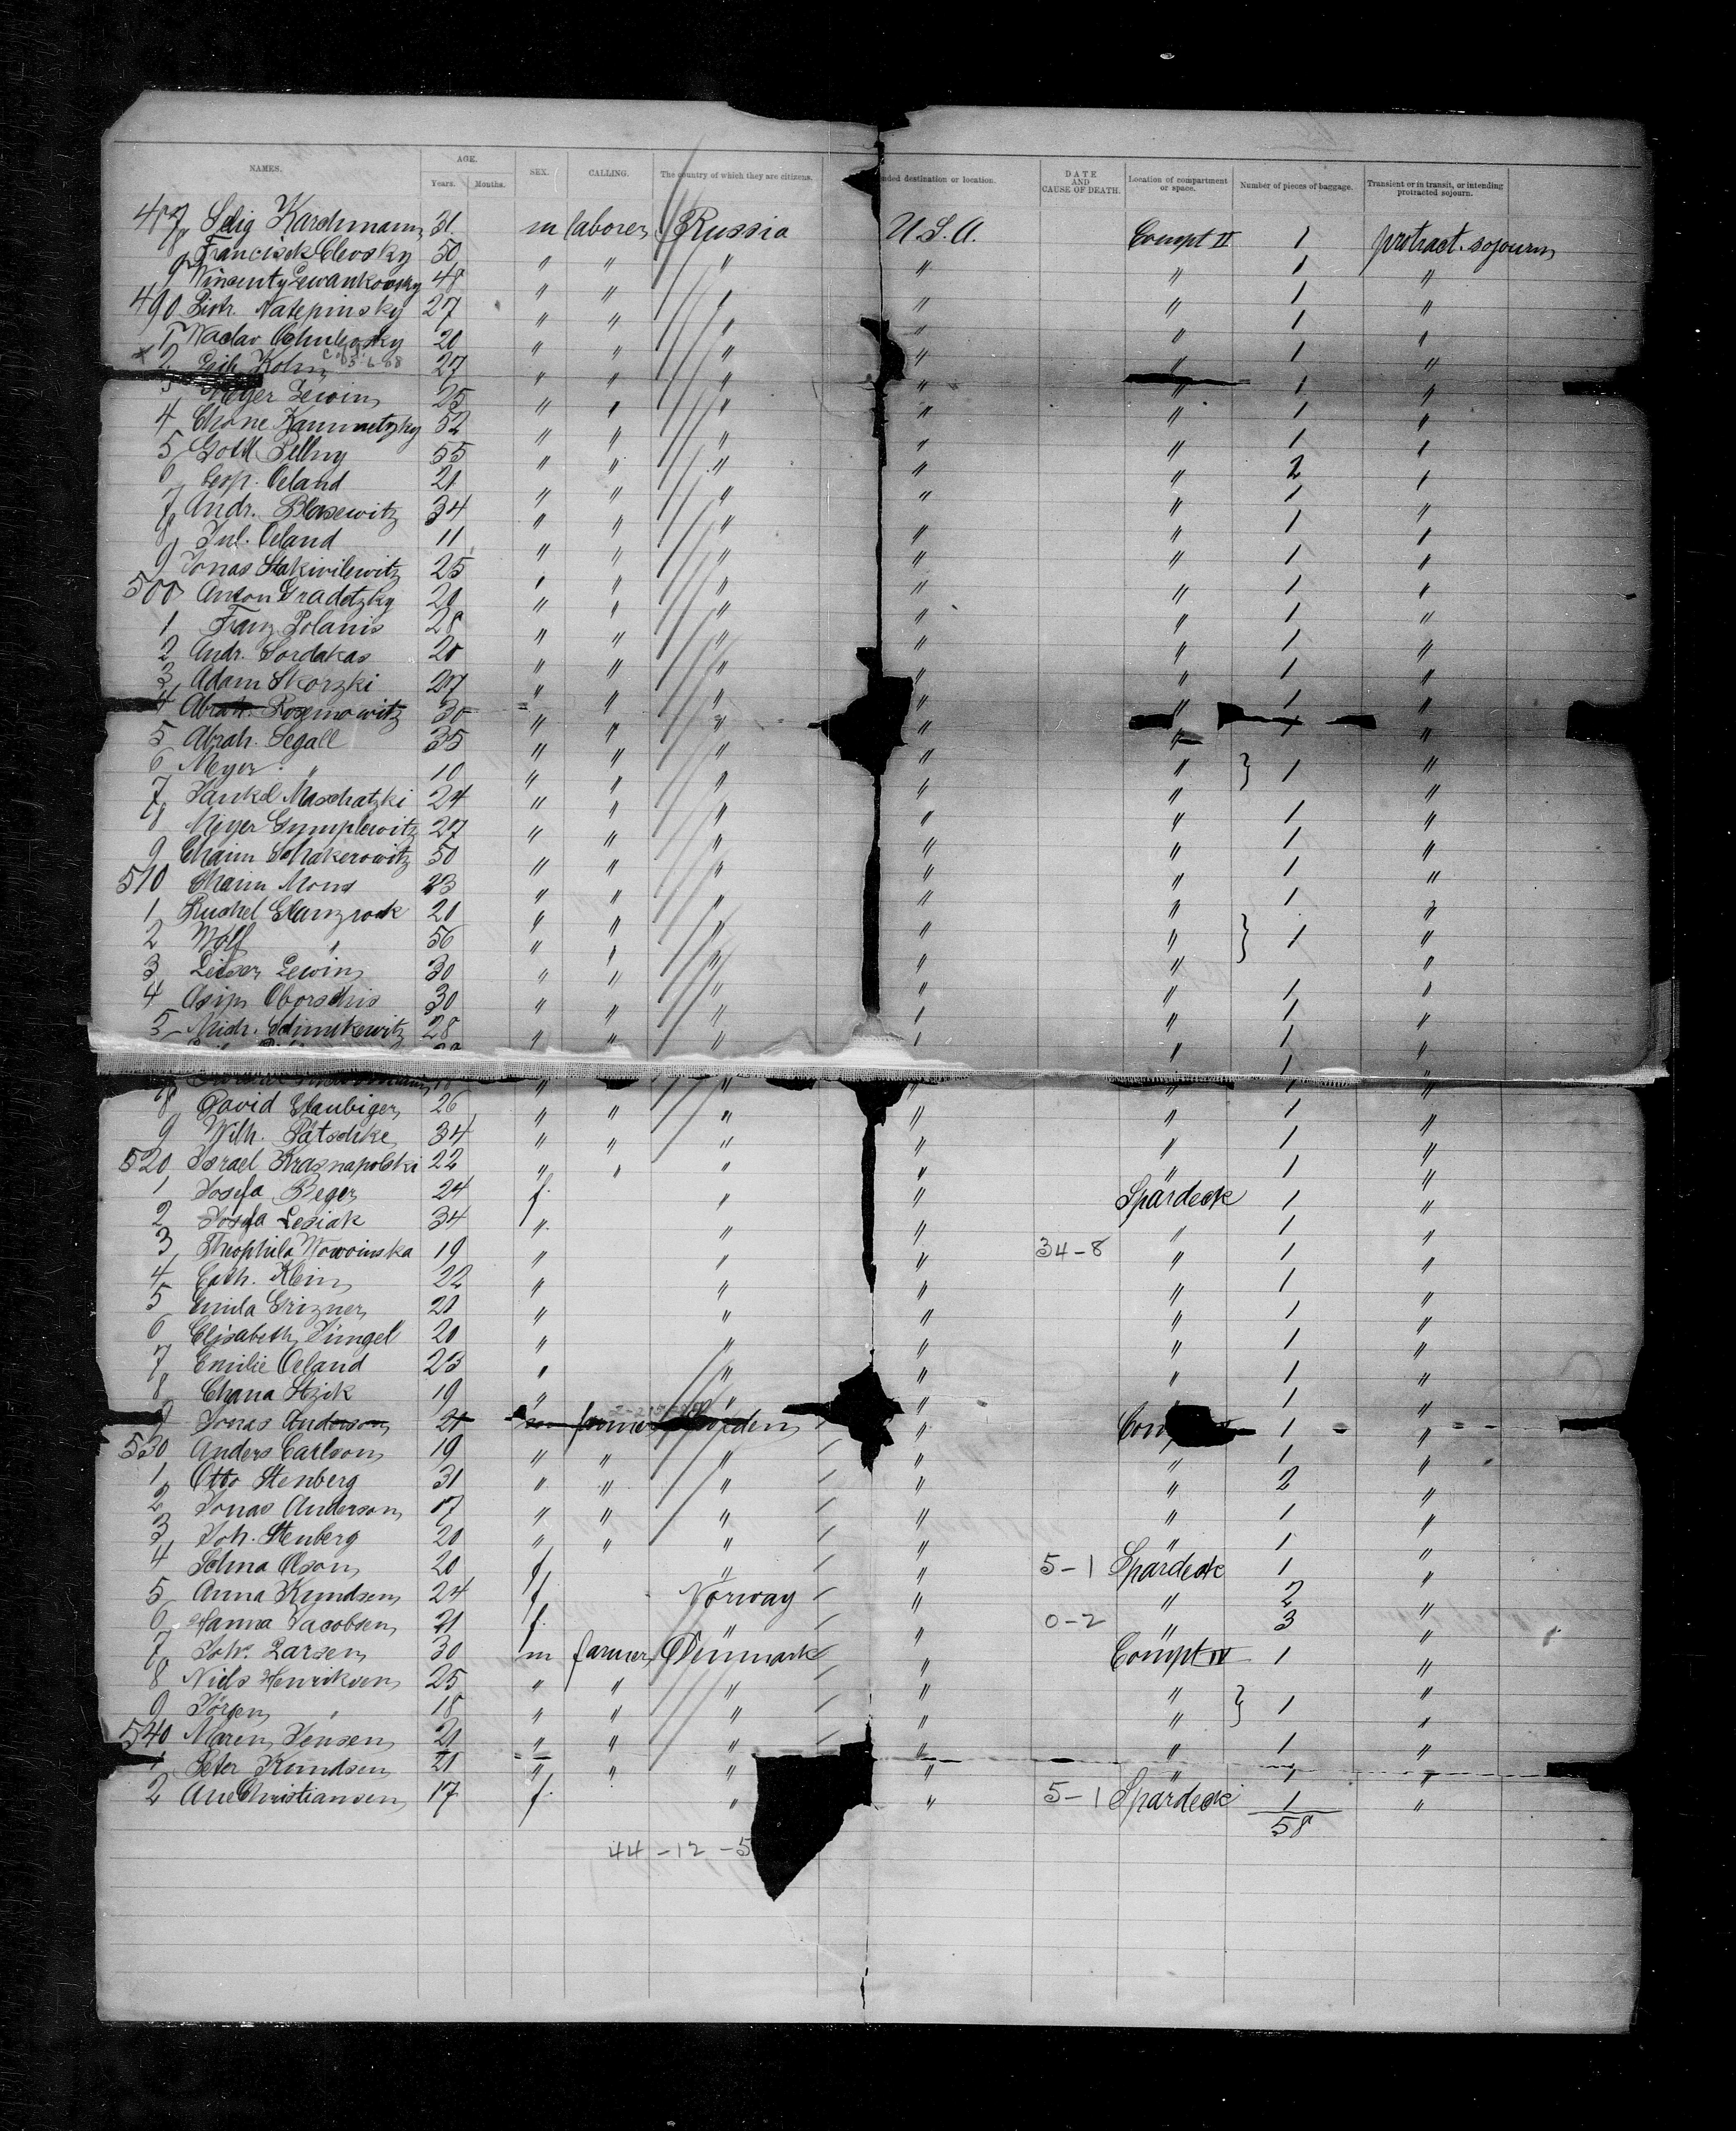 NAMES. AGE. Years. Months. SEX. CALLING. The country of which they are citizens. nded destination or location. DATE AND CAUSE OF DEATH. Location of compartment or space. Number of pieces of baggage. Transient or in transit, or intending protracted sojourn.
487 Selig Karchmann 31. m laborer Russia U.S.A. Compt II 1 protract. sojourn
8 Francisek 50 " " " " " 1 "
9 Wincenty Lewankowsky 48 " " " " " 1 "
490 Piotr. Natepinsky 27 " " " " " 1 "
1 Waclav 20 " " " " " 1 "
2 Kohn 27 " " " " " 1 "
3 Meyer Lewin 25 " " " " " 1 "
4 Chone Kaminetzky 52 " " " " " 1 "
5 Gottl. 55 " " " " " 2 "
6 Oeland 21 " " " " " 1 "
7 Andr. Blasewitz 34 " " " " " 1 "
8 Jul. Oeland 11 " " " " " 1 "
9 Jonas 25 " " " " " 1 "
500 Anton Gradetzky 20 " " " " " 1 "
1 Franz Polanis 28 " " " " " 1 "
2 Andr. Sordakas 20 " " " " " 1 "
3 Adam Skorzki 27 " " " " " 1 "
4 Abrah. 30 " " " " " 1 "
5 Abrah. Segall 35 " " " " "
6 Meyer " 10 " " " " " } 1 "
7 Jankel Maschatzki 24 " " " " " 1 "
8 Meyer Gumplewitz 27 " " " " " 1 "
9 Chaim Schakerowitz 50 " " " " " 1 "
510 Chaim Mons 23 " " " " " 1 "
1 Ruchel 20 " " " " "
2 Wolf " 56 " " " " " } 1 "
3 Leiser Lewin 30 " " " " " 1 "
4 Osip 30 " " " " " 1 "
5 Mich. 28 " " " " " 1 "
8 David Glaubiger 26 " " " " " 1 "
9 Wilh. Pätschke 34 " " " " " 1 "
520 Israel Krasnapolski 22 " " " " " 1 "
1 Josefa Beger 24 f. " " Spardeck 1 "
2 Josefa Lesiak 34 " " " " 1 "
3 Theophila Nowoinska 19 " " " 34-8 " 1 "
4 Cath. Klein 22 " " " " 1 "
5 Emila Grizner 20 " " " " 1 "
6 Elisabeth Jüngel 20 " " " " 1 "
7 Emilie Oeland 23 " " " " 1 "
8 Chana 19 " " " " 1 "
9 Jonas Anderson 21 m farmer Sweden " 1 "
530 Anders Carlson 19 " " " " " 1 "
1 Otto Stenberg 31 " " " " " 2 "
2 Jonas Anderson 17 " " " " " 1 "
3 Joh. Stenberg 20 " " " " " 1 "
4 Selma Olson 20 f. " " 5-1 Spardeck 1 "
5 Anna Knudsen 24 f. Norway " " 2 "
6 Hanna Jacobsen 21 f. " 0-2 " 3 "
7 Joh. Larsen 30 m farmer Denmark " Compt IV 1 "
8 Niels Henriksen 25 " " " " " "
9 Jörgen " 18 " " " " " } 1 "
540 Maren Jensen 21 " " " " " 1 "
1 Peter Knudsen 21 " " " " " 1 "
2 Ane Christiansen 17 f. " " 5-1 Spardeck 1 "
58
44-12-5